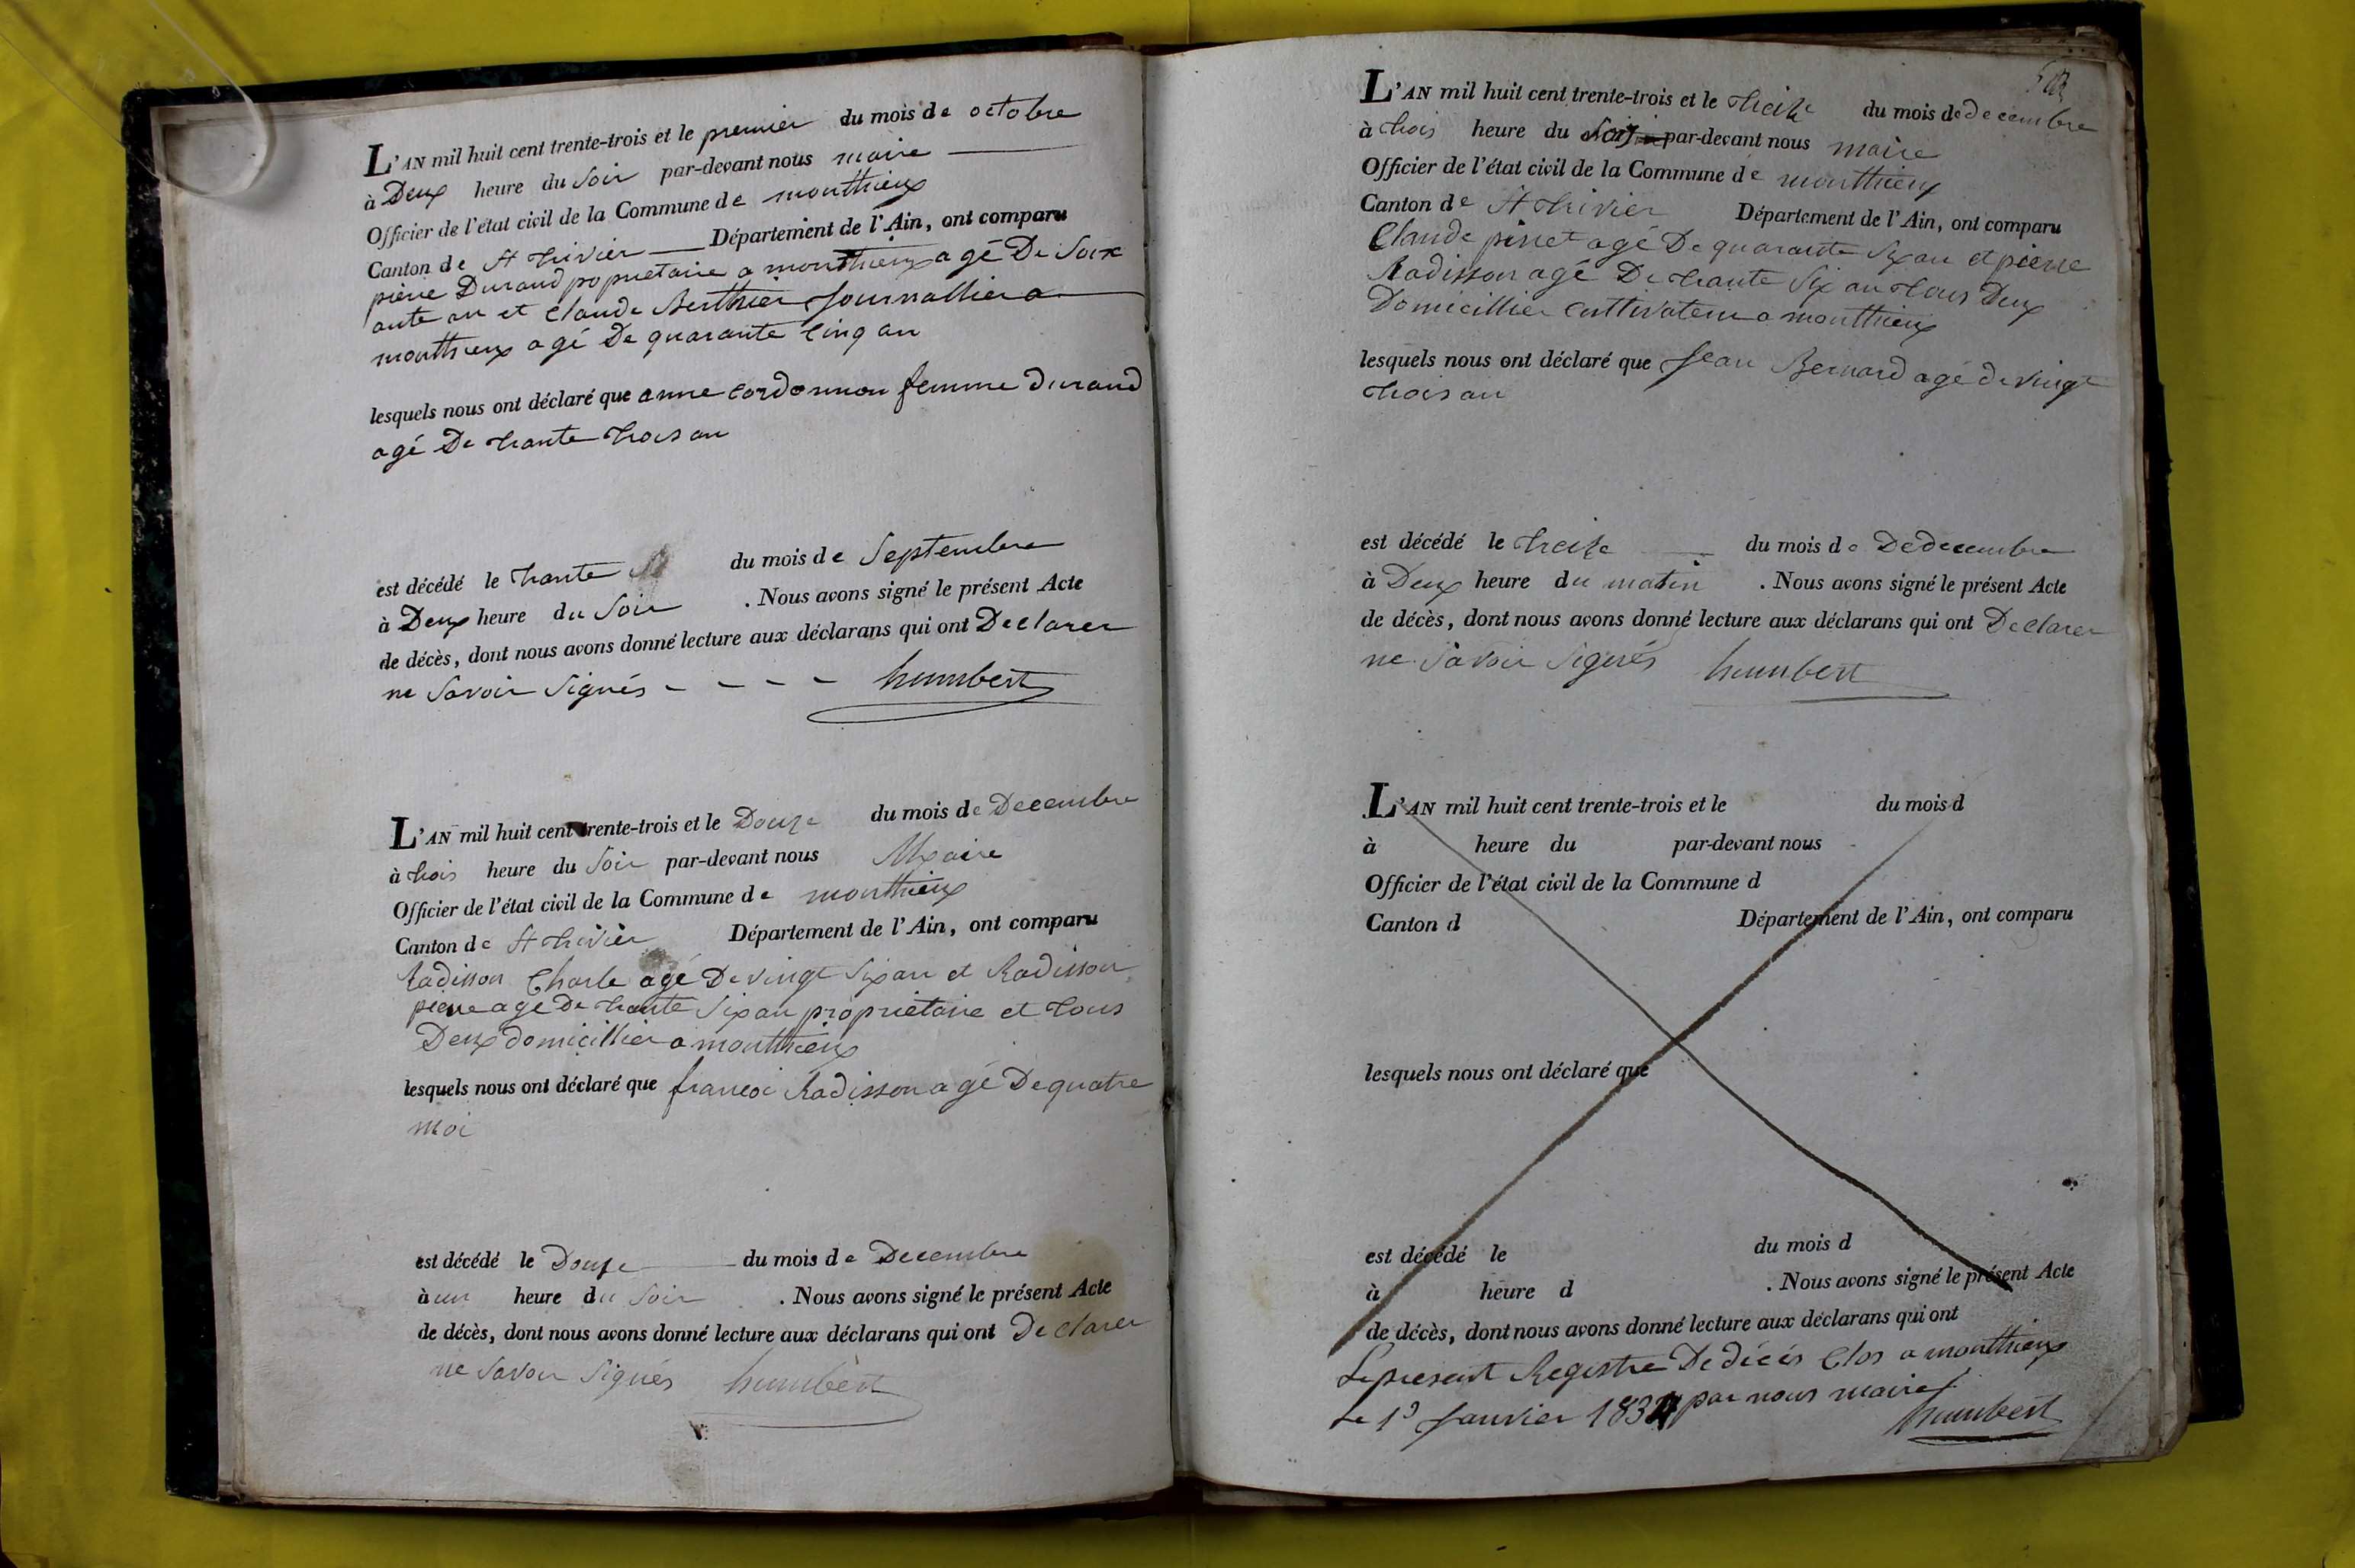 L'AN mil huit cent trente-trois et le premier du mois de octobre
à Deux heure du Soir par-devant nous maire
Officier de l'état civil de la Commune de monthieux
Canton de St trivier Département de l'Ain, ont comparu
pierre Durand poprietaire a monthieux agé De Soix
ante an et Claude Berthier Journallier a
monthieux agé De quarante Cinq an
lesquels nous ont déclaré que anne Cordonnon femme durand
agé De trante trois an
est décédé le trante du mois de Septembre
à Deux heure du Soir . Nous avons signé le présent Acte
de décès, dont nous avons donné lecture aux déclarans qui ont Declarer
ne Savoir Signés - - - - humbert
L'AN mil huit cent trente-trois et le Douze du mois de Decembre
à trois heure du Soir par-devant nous Maire
Officier de l'état civil de la Commune de monthieux
Canton de St trivier Département de l'Ain, ont comparu
Radisson Charle agé De vingt Six an et Radisson
pierre agé De trante Six an propriétaire et tous
Deux domicillier a monthieux
lesquels nous ont déclaré que francoi Radisson agé De quatre
moi
est décédé le Douze du mois de Decembre
à un heure du Soir . Nous avons signé le présent Acte
de décès, dont nous avons donné lecture aux déclarans qui ont Declarer
ne Savoir Signés humbert
L'AN mil huit cent trente-trois et le treize du mois de decembre
à trois heure du Soir par-devant nous maire
Officier de l'état civil de la Commune de monthieux
Canton de St trivier Département de l'Ain, ont comparu
Claude pinet agé De quarante Six an et pierre
Radisson agé De trante Six an tous Deux
Domicillier Cultivateur a monthieux
lesquels nous ont déclaré que Jean Bernard agé de vingt
trois an
est décédé le treize du mois de Dedecembre
à Deux heure du matin . Nous avons signé le présent Acte
de décès, dont nous avons donné lecture aux déclarans qui ont Declarer
ne Savoir Signés humbert
L'AN mil huit cent trente-trois et le du mois d
à heure du par-devant nous
Officier de l'état civil de la Commune d
Canton d Département de l'Ain, ont comparu
lesquels nous ont déclaré que
est décédé le du mois d
à heure d . Nous avons signé le présent Acte
de décès, dont nous avons donné lecture aux déclarans qui ont
Le present Registre De décés Clos a monthieux
Le 1er Janvier 1834 par nous maire
humbert